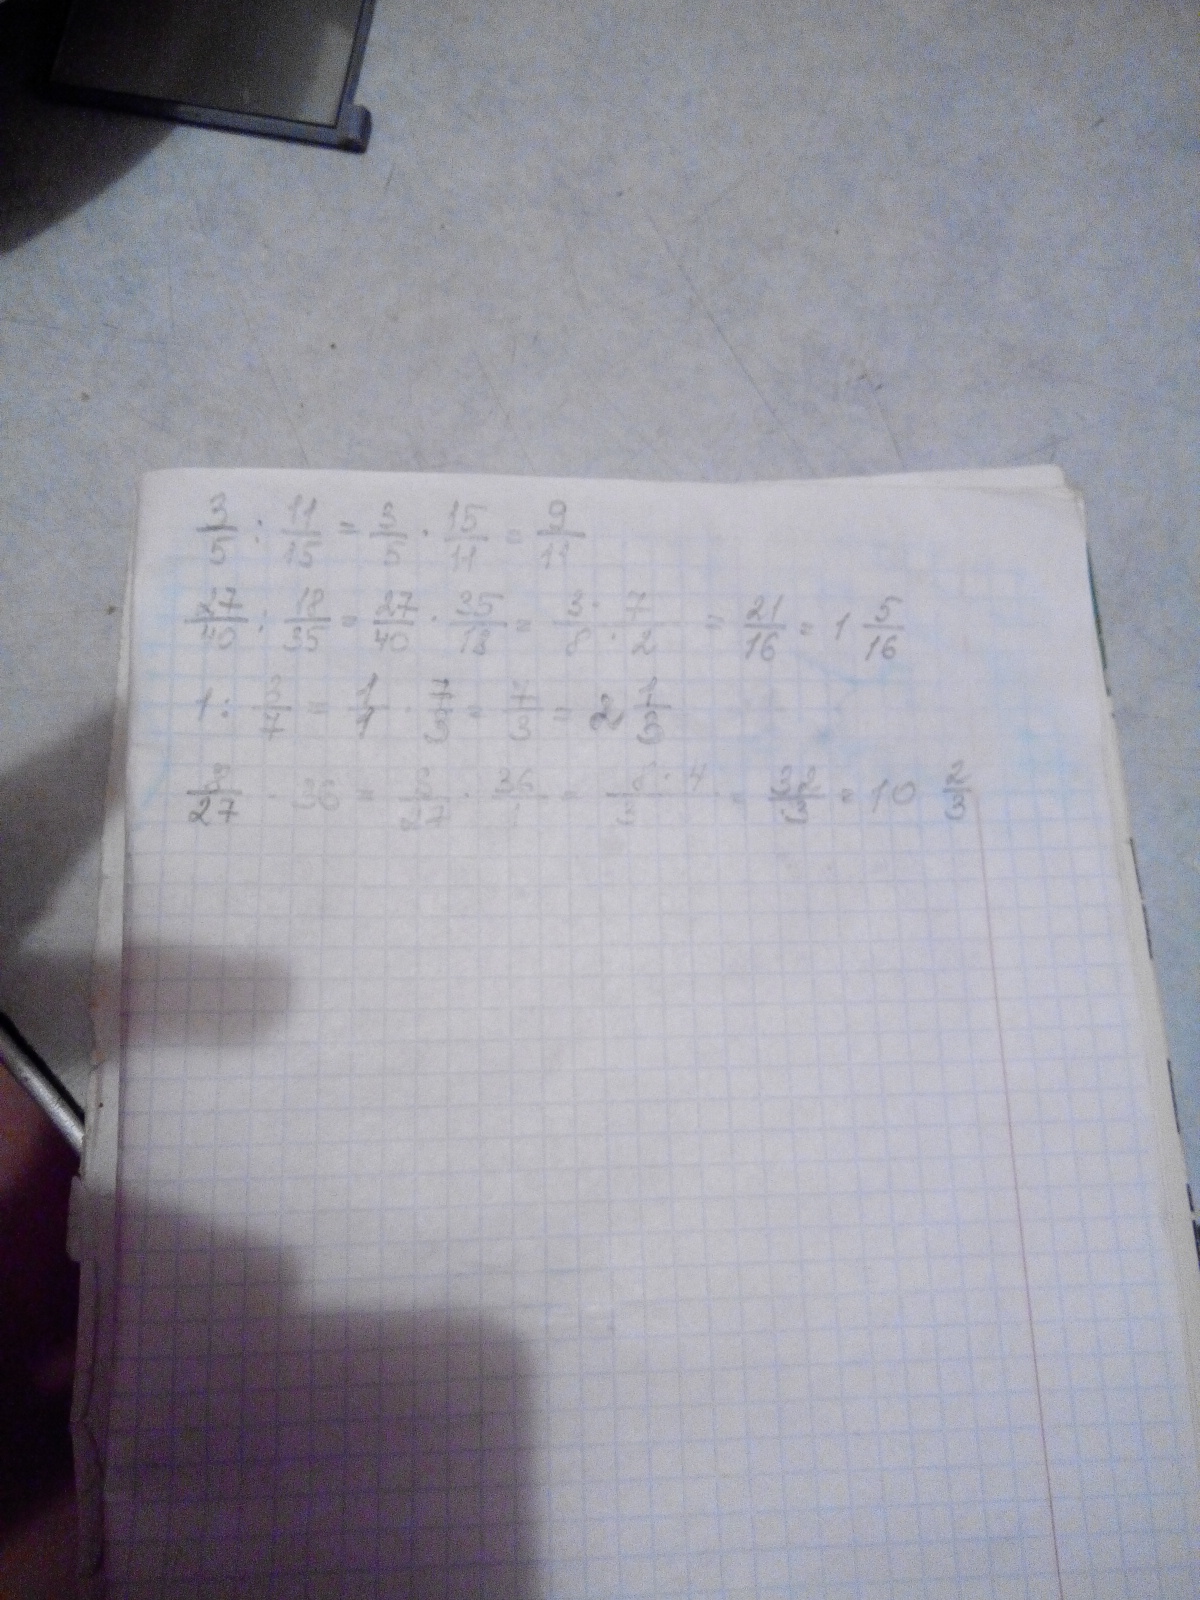 3/5 : 11/15 = 3/5 · 15/11 = 9/11
27/40 : 18/35 = 27/40 · 35/18 = 3 · 7 / 8 · 2 = 21/16 = 1 5/16
1 : 3/7 = 1/1 · 7/3 = 7/3 = 2 1/3
8/27 · 36 = 8/27 · 36/1 = 8 · 4 / 3 = 32/3 = 10 2/3